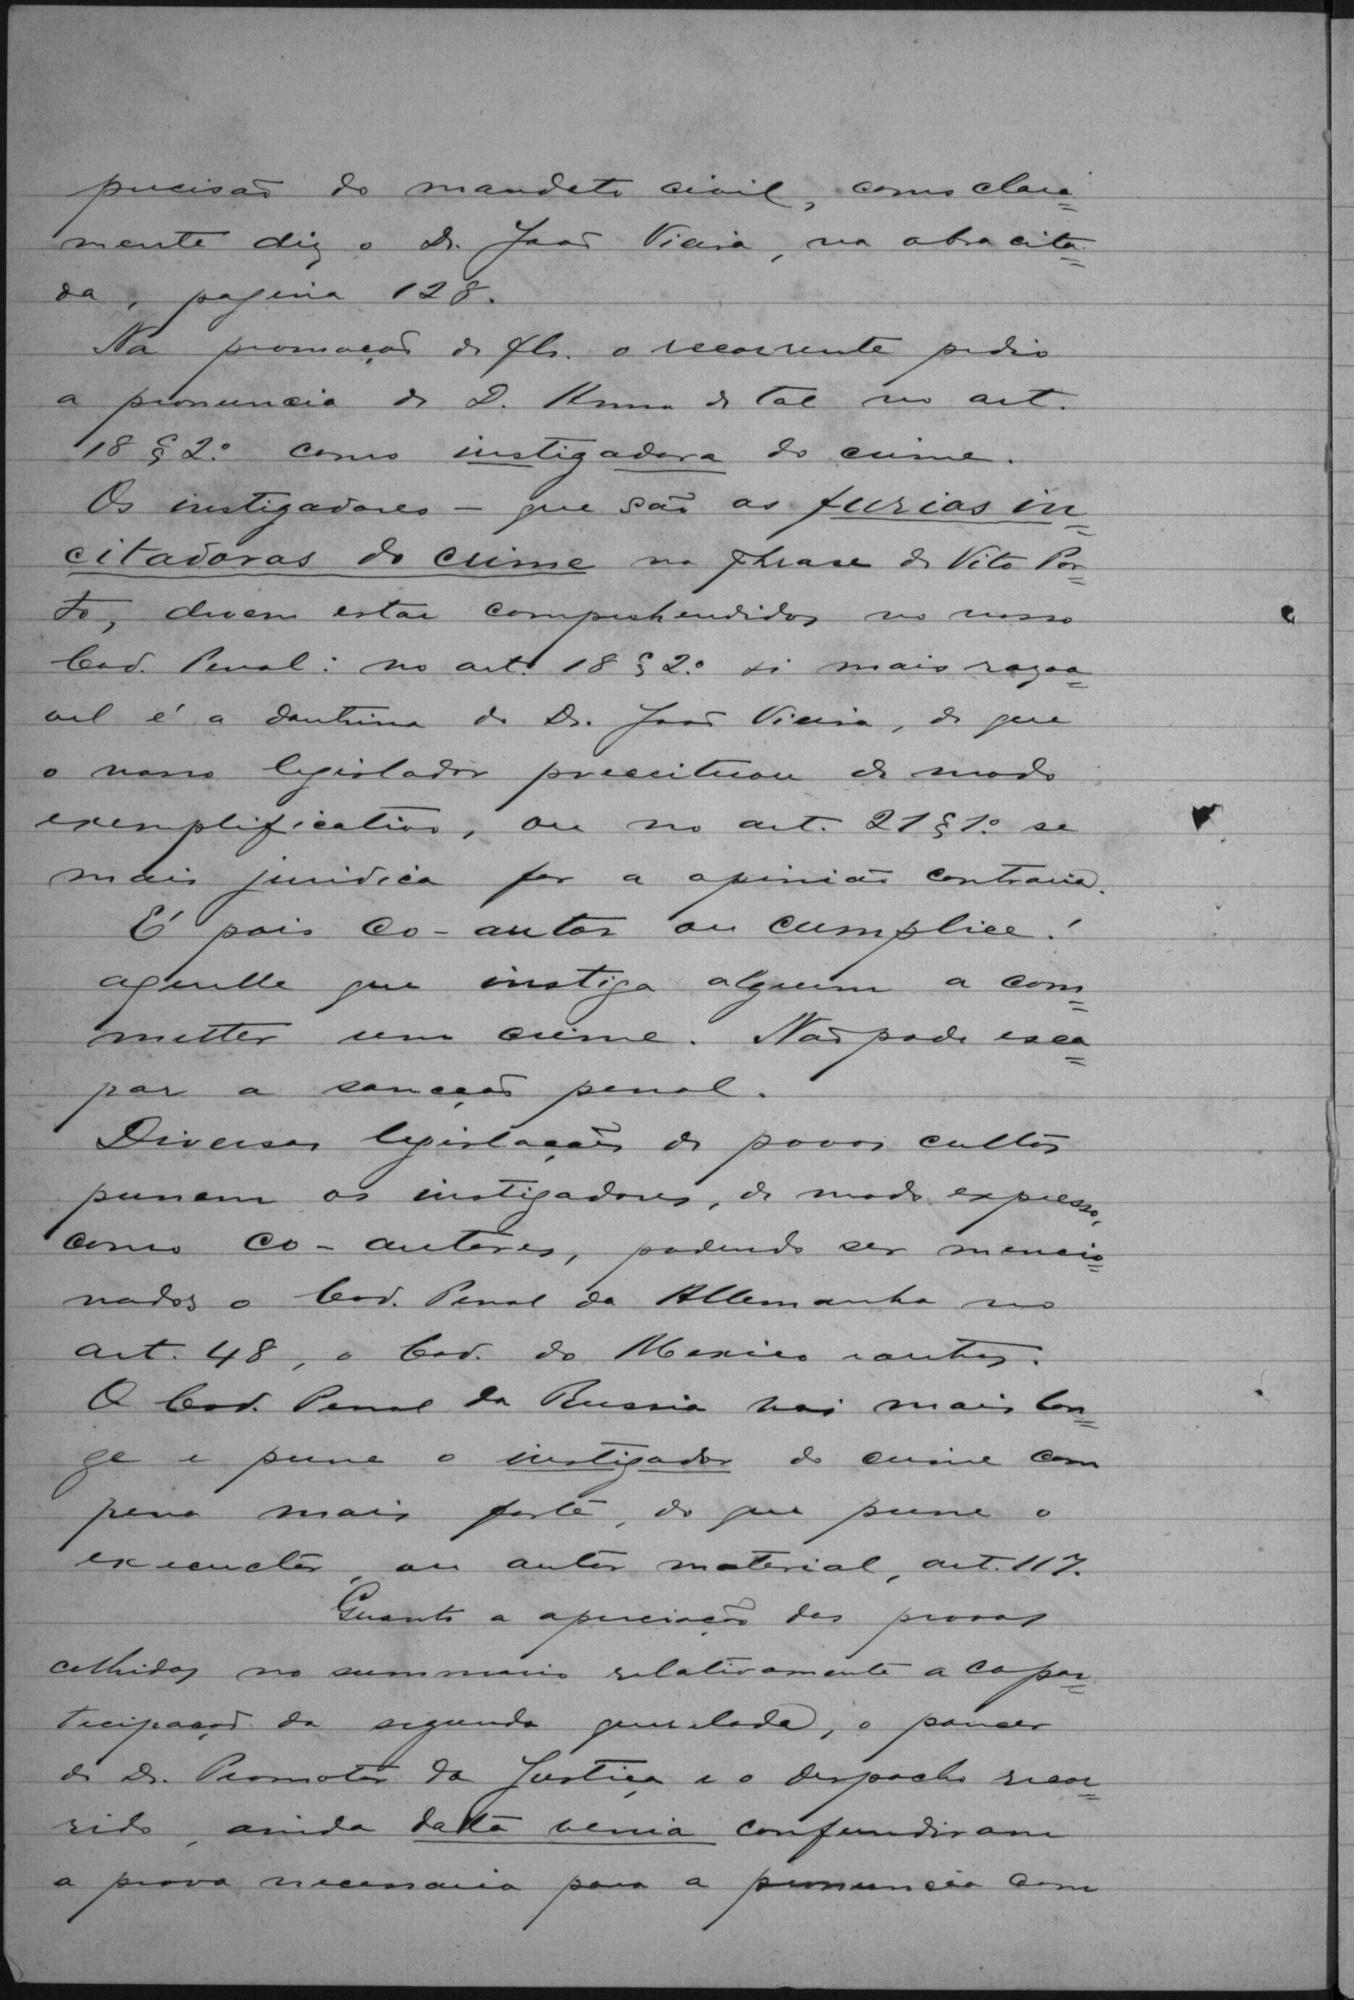 precisão do mandato civil, como clara=
mente diz o Dr. João Vieira, na obra cita=
da, pagina 128.
Na promoção de fls. o recorrente pedio
a pronuncia de D. Anna de tal no art.
18 § 2.º como instigadora do crime.
Os instigadores – que são as furias in=
citadoras do crime na phrase de Vito Por=
to, devem estar comprehendidos no nosso
Cod. Penal: no art. 18 § 2.º si mais razoa=
vel é a doutrina do Dr. João Vieira, de que
o nosso legislador preceituou de modo
exemplificativo, ou no art. 21 § 1.º se
mais juridica for a opinião contraria.
É pois co-autor ou cumplice!
aquelle que instiga alguem a com=
metter um crime. Não pode esca=
par a sancção penal.
Diversas legislações de povos cultos
punem os instigadores, de modo expresso,
como co-autores, podendo ser mencio=
nados o Cod. Penal da Allemanha no
art. 48, o Cod. do Mexico e outros.
O Cod. Penal da Russia vai mais lon=
ge e pune o instigador do crime com
pena mais forte, do que pune o
executor, ou autor material, art. 117.
Quanto a apreciação das provas
colhidas no summario relativamente a copar=
ticipação da segunda querelada, o parecer
do Dr. Promotor da Justiça e o despacho recor=
rido, ainda data venia confundiram
a prova necessaria para a pronuncia com